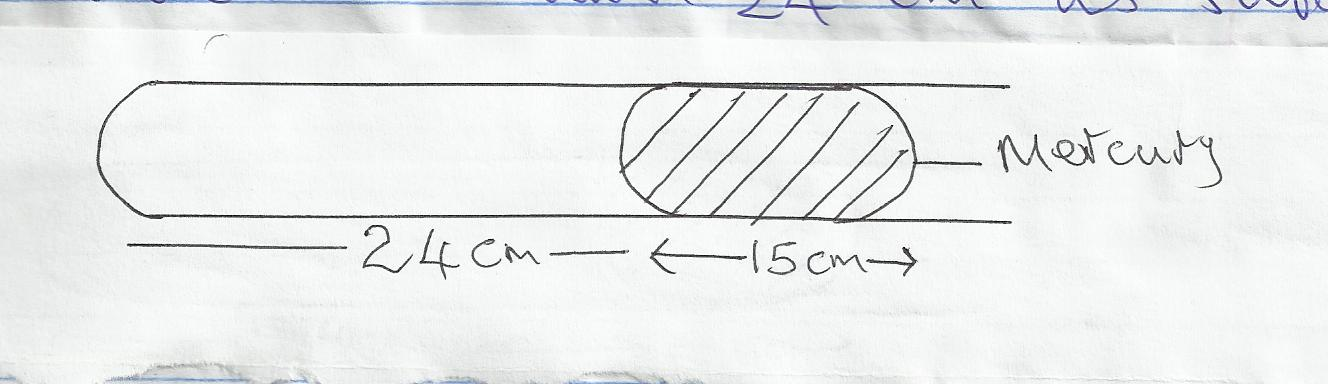 24 cm as
Mercury
24cm
15cm